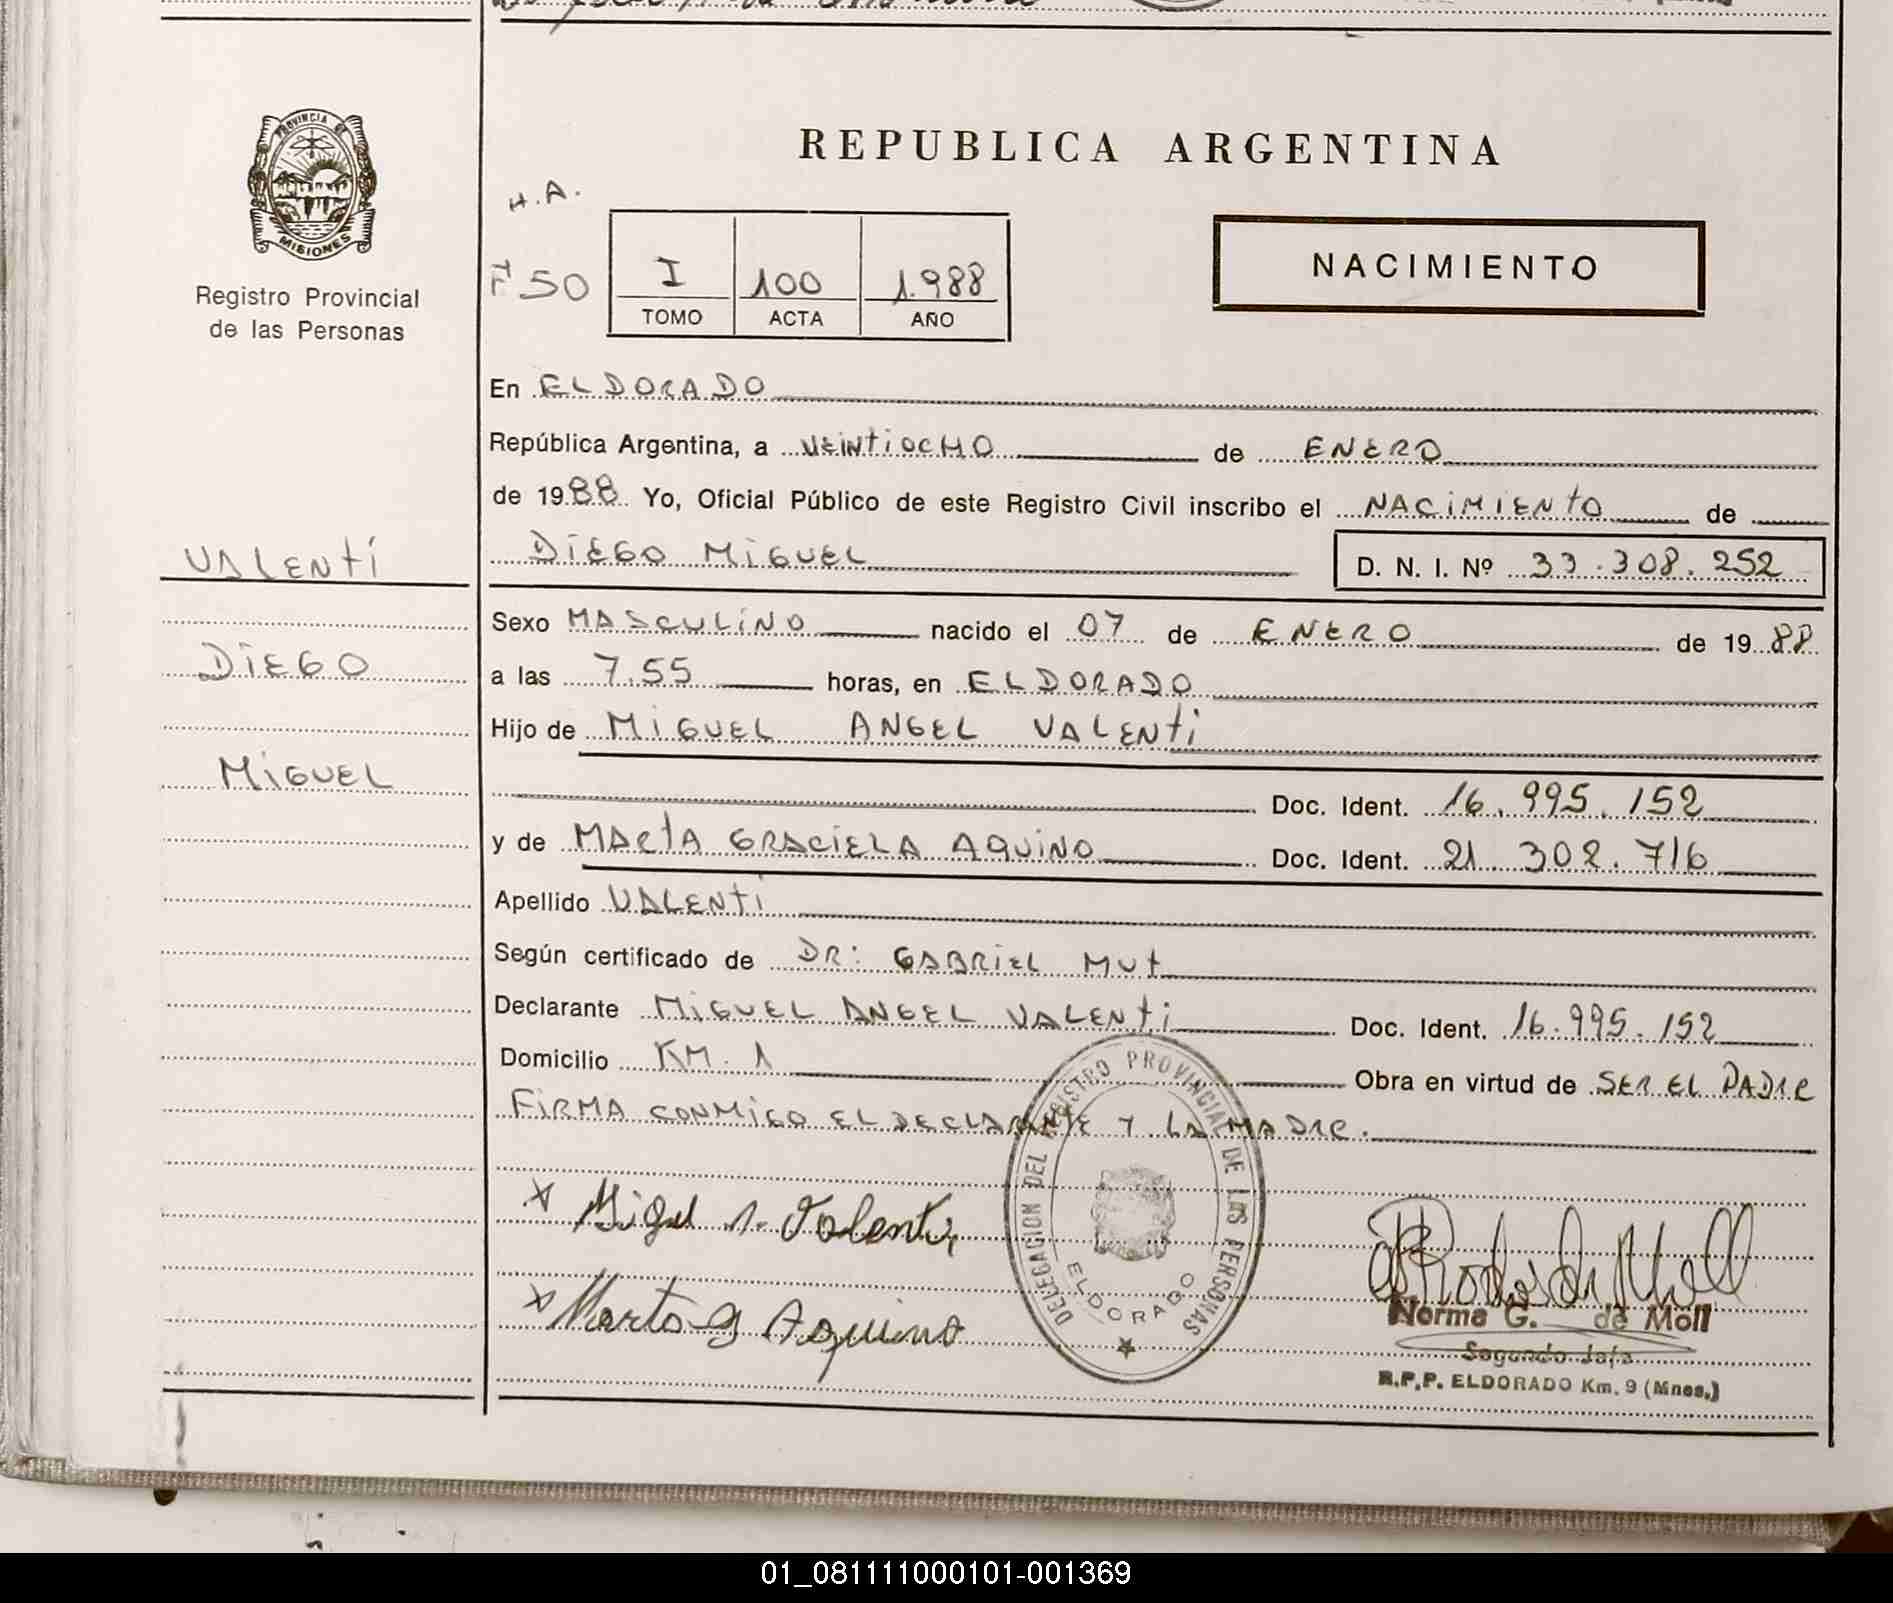 PROVINCIA DE
MISIONES
Registro Provincial
de las Personas
REPUBLICA ARGENTINA
H.A.
Fº50
I 100 1.988
TOMO ACTA AÑO
NACIMIENTO
En ELDORADO
República Argentina, a VEINTIOCHO de ENERO
de 1988 Yo, Oficial Público de este Registro Civil inscribo el NACIMIENTO de
VALENTI
DIEGO MIGUEL D. N. I. Nº 33.308.252
Sexo MASCULINO nacido el 07 de ENERO de 1988
DIEGO
a las 7.55 horas, en ELDORADO
Hijo de MIGUEL ANGEL VALENTI
MIGUEL
Doc. Ident. 16.995.152
y de MARTA GRACIELA AQUINO Doc. Ident. 21.302.716
Apellido VALENTI
Según certificado de DR: GABRIEL MUT
Declarante MIGUEL ANGEL VALENTI Doc. Ident. 16.995.152
Domicilio KM. 1 Obra en virtud de SER EL PADRE
FIRMA CONMIGO EL DECLARANTE Y LA MADRE.
DELEGACION DEL REGISTRO PROVINCIAL DE LAS PERSONAS
ELDORADO
x Migel A. Valenti
x Marta G Aquino
Norma G. de Moll
Segundo Jefe
R.P.P. ELDORADO Km. 9 (Mnes.)
01_081111000101-001369